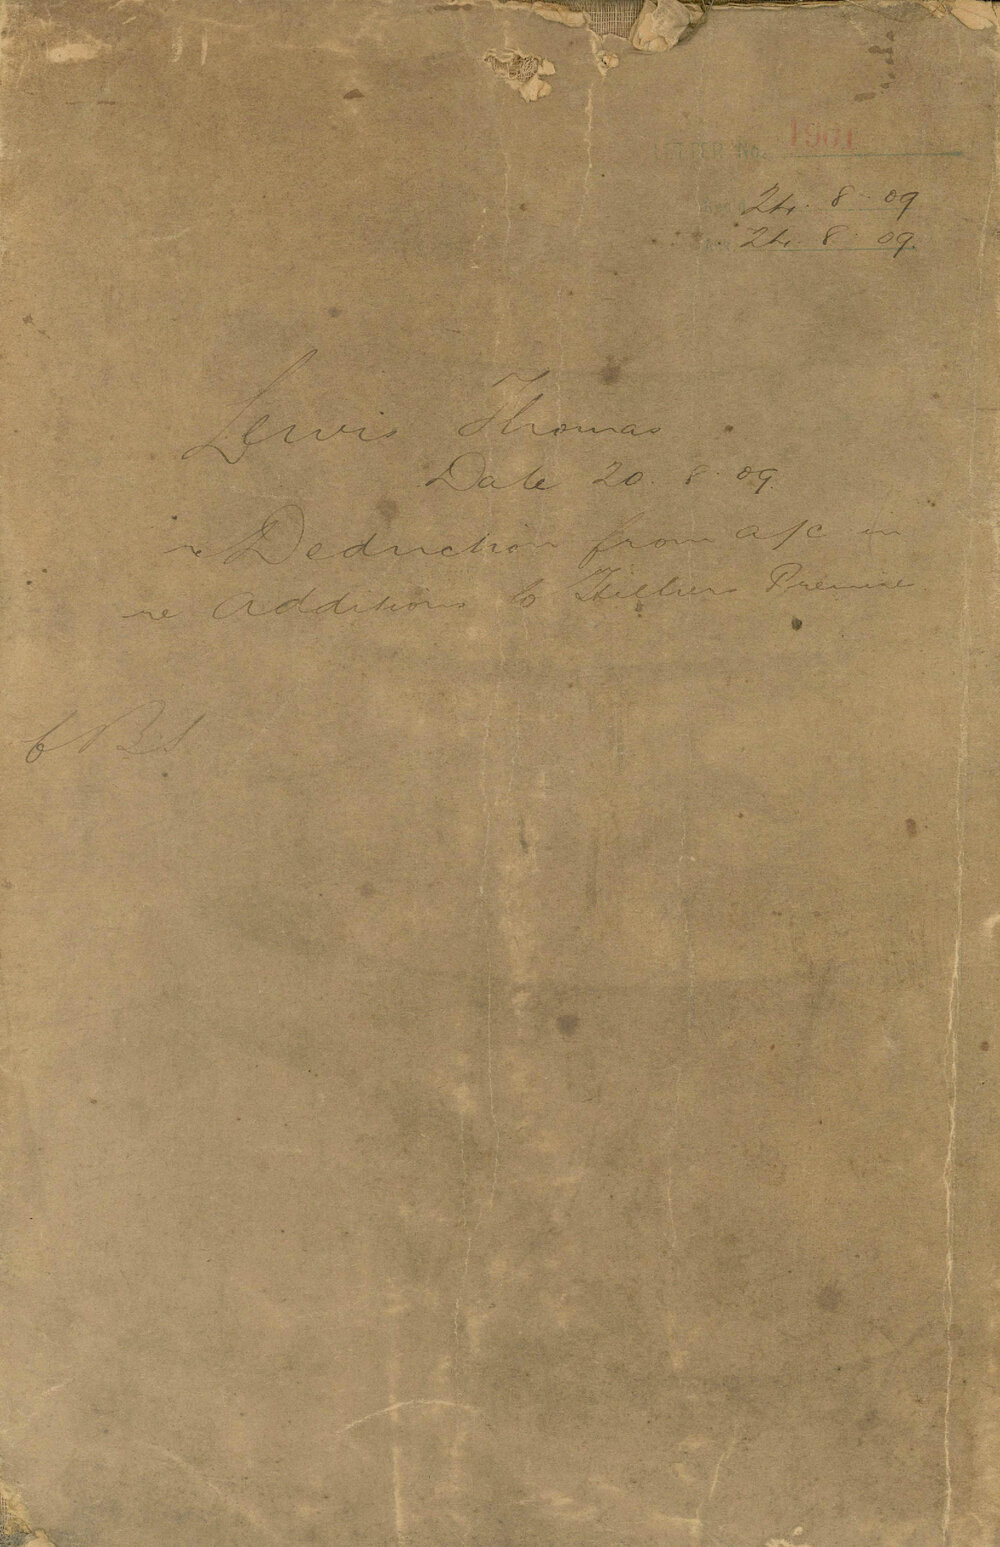 LETTER No. 1901
24. 8. 09
24. 8. 09.
Lewis Thomas
Date 20. 8. 09.
re Deduction from a/c in
re additions to Premise